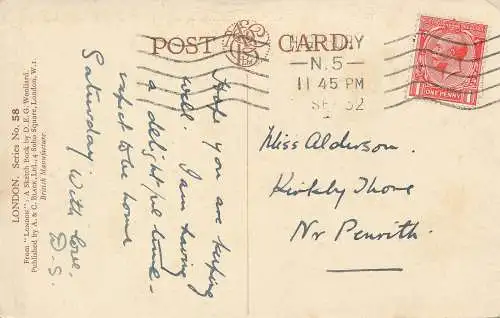 POST CARD.
N.5
11 45 PM
ONE PENNY
Hope you are keeping
well. I am having
a delightful time –
expect to be home
Saturday. With love.
D.S.
Miss Alderson.
Kirkby Thore
Nr Penrith
LONDON. Series No. 58
From "London": A Sketch Book by D. E. G. Woollard.
Published by A. & C. Black, Ltd., 4 Soho Square, London, W.1.
British Manufacture